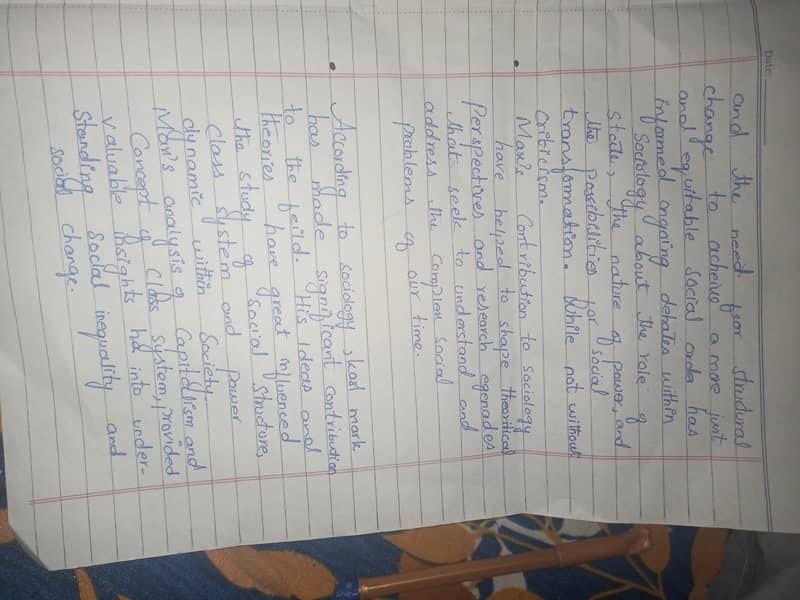 Date
and the need for structural
change to acheive a more just
and equitable social order has
informed ongoing debates within
Sociology about the role of
State, the nature of power, and
the possibilities for social
transformation. While not without
Criticism.
Marx's Contribution to sociology
have helped to shape theoritical
Perspectives and research egenades
that seek to understand and
address the complex social
problems of our time.
According to sociology, karl mark
has made significant contribution
to the feild. His ideas and
theories have great influenced
the study of social structure,
class system and power
dynamic within Society.
Marx's analysis of Capitalism and
Concept of class system, provided
valuable insights into under-
Standing social inequality and
social change.